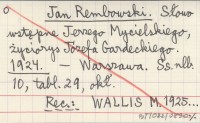 o Jan Rembowski. Słowo
wstępne Jerzego Mycielskiego,
życiorys Józefa Gardeckiego.
1924. — Warszawa. Ss. nlb.
10, tabl. 29, okł.
Rec.: WALLIS M. 1925...